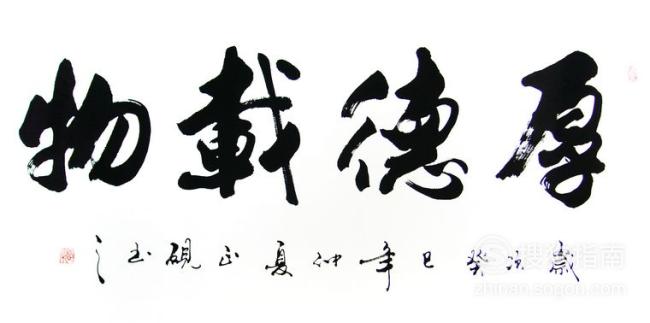 厚德載物
歲次癸巳年仲夏正硯书之
搜狗指南
zhinan.sogou.com